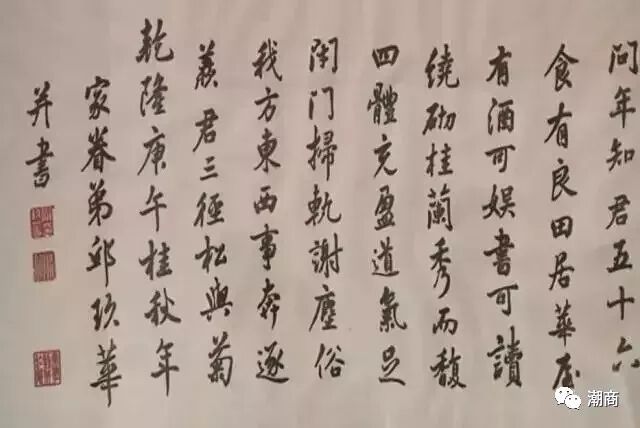 問年知君五十六
食有良田居華屋
有酒可娛書可讀
繞砌桂蘭秀而馥
四體充盈道氣足
閉門掃軌謝塵俗
我方東西事奔逐
羨君三徑松與菊
乾隆庚午桂秋年
家眷弟邱玖華
并書
潮商